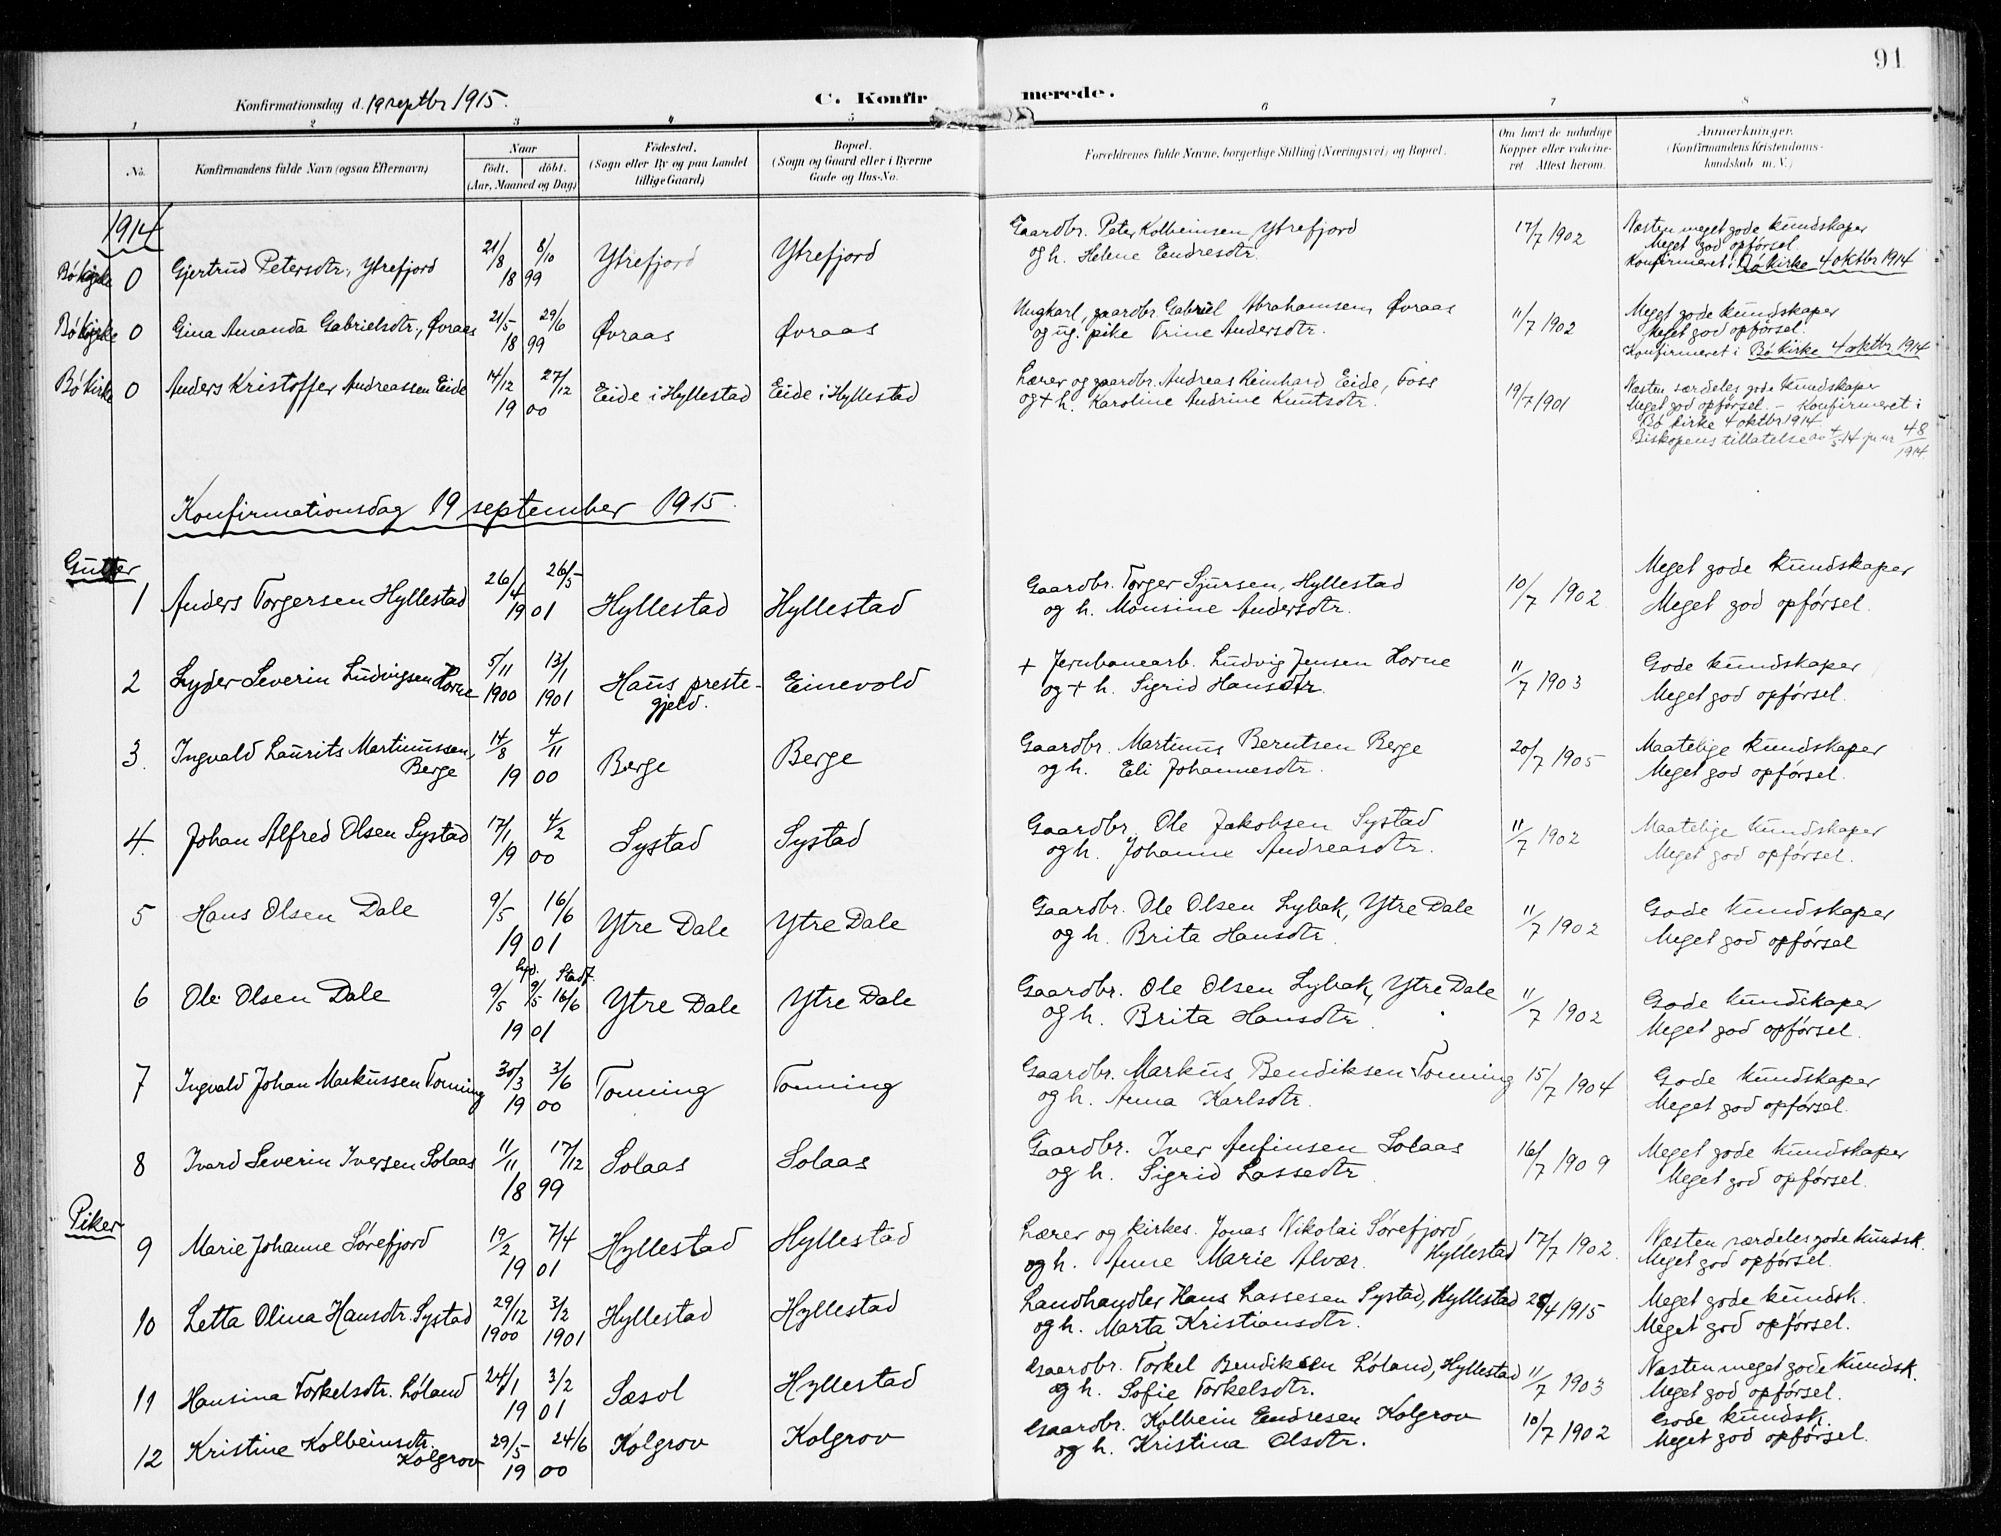 91
Konfirmationsdag d. 19 septbr 1915.
C. Konfirmerede.
1 2 3 4 5 6 7 8
No.
Konfirmandens fulde Navn (ogsaa Efternavn)
Naar
født. døbt.
(Aar, Maaned og Dag)
Fødested.
(Sogn eller By og paa Landet
tillige Gaard)
Bopæl.
(Sogn og Gaard eller i Byerne
Gade og Hus-No.
Forældrenes fulde Navne, borgerlige Stilling (Næringsvei) og Bopæl.
Om havt de naturlige
Kopper eller vakcine-
ret Attest herom.
Anmærkninger.
(Konfirmandens Kristendoms-
kundskab m. V.)
1914
Bø kirke 0 Gjertrud Petersdtr. Ytrefjord 21/8 8/10 18 99 Ytrefjord Ytrefjord
Gaardbr. Peter Kolbeinsen Ytrefjord
og h. Helene Endresdtr.
17/7 1902
Næsten meget gode kundskaper
Meget god opførsel.
Konfirmeret i Bø kirke 4 oktbr 1914
Bø kirke 0 Gina Amanda Gabrielsdtr., Øvraas 21/5 29/6 18 99 Øvraas Øvraas
Ungkarl, gaardbr. Gabriel Abrahamsen, Øvraas
og ug. pike Trine Andersdtr.
11/7 1902
Meget gode kundskaper
Meget god opførsel.
Konfirmeret i Bø kirke 4 oktbr 1914
Bø kirke 0 Anders Kristoffer Andreassen Eide 14/12 27/12 19 00 Eide i Hyllestad Eide i Hyllestad
Lærer og gaardbr. Andreas Reinhard Eide, Foss
og + h. Karoline Andrine Knutsdtr.
19/7 1901
Næsten særdeles gode kundskaper
Meget god opførsel. – Konfirmeret i
Bø kirke 4 oktbr 1914.
Biskopens tillatelse av 4/5-14 jnr 48/1914.
Konfirmationsdag 19 september 1915.
Gutter
1 Anders Torgersen Hyllestad 26/4 26/5 19 01 Hyllestad Hyllestad
Gaardbr. Torger Sjursen, Hyllestad
og h. Monsine Andersdtr.
10/7 1902
Meget gode kundskaper
Meget god opførsel.
2 Lyder Severin Ludvigsen Horne 5/11 1900 13/1 1901 Haus preste-
gjeld. Einevold
+ Jernbanearb. Ludvig Jensen Horne
og + h. Sigrid Hansdtr.
11/7 1903
Gode kundskaper
Meget god opførsel.
3. Ingvald Laurits Martinussen,
Berge 14/8 4/11 19 00 Berge Berge
Gaardbr. Martinus Berntsen Berge
og h. Eli Johannesdtr.
20/7 1905
Maatelige kundskaper
Meget god opførsel.
4. Johan Alfred Olsen Systad 17/1 4/2 19 00 Systad Systad
Gaardbr. Ole Jakobsen Systad
og h. Johanne Andreasdtr.
11/7 1902
Maatelige kundskaper
Meget god opførsel.
5 Hans Olsen Dale 9/5 16/6 19 01 Ytre Dale Ytre Dale
Gaardbr. Ole Olsen Lybak, Ytre Dale
og h. Brita Hansdtr.
11/7 1902
Gode kundskaper
Meget god opførsel
6 Ole Olsen Dale 9/5 9/5 Stadf. 16/6 19 01 Ytre Dale Ytre Dale
Gaardbr. Ole Olsen Lybak, Ytre Dale
og h. Brita Hansdtr.
11/7 1902
Gode kundskaper
Meget god opførsel.
7 Ingvald Johan Markussen Tonning 30/3 3/6 19 00 Tonning Tonning
Gaardbr. Markus Bendiksen Tonning
og h. Anna Karlsdtr.
15/7 1904
Gode kundskaper
Meget god opførsel.
8 Ivard Severin Iversen Solaas 11/11 17/12 18 99 Solaas Solaas
Gaardbr. Iver Anfinsen Solaas
og h. Sigrid Lassedtr
16/7 1909
Meget gode kundskaper
Meget god opførsel.
Piker
9 Marie Johanne Sørefjord 19/2 7/4 19 01 Hyllestad Hyllestad
Lærer og kirkes. Jonas Nikolai Sørefjord,
og h. Anne Marie Alvær. Hyllestad
17/7 1902.
Næsten særdeles gode kundsk.
Meget god opførsel.
10 Letta Olina Hansdtr. Systad 29/12 1900 3/2 1901 Hyllestad Hyllestad
Landhandler Hans Lassesen Systad, Hyllestad
og h. Marta Kristiansdtr.
28/4 1915
Meget gode kundsk.
Meget god opførsel.
11 Hansina Torkelsdtr. Løland 24/1 3/2 19 01 Sæsol Hyllestad
Gaardbr. Torkel Bendiksen Løland, Hyllestad
og h. Sofie Torkelsdtr.
11/7 1903
Næsten meget gode kundsk.
Meget god opførsel.
12 Kristine Kolbeinsdtr.
Kolgrov 29/5 24/6 19 00 Kolgrov Kolgrov
Gaardbr. Kolbein Endresen Kolgrov
og h. Kristina Olsdtr.
10/7 1902
Gode kundsk.
Meget god opførsel.